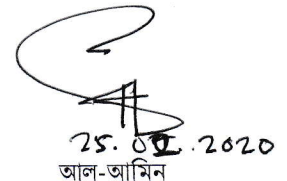 25.02.2020
আল-আমিন